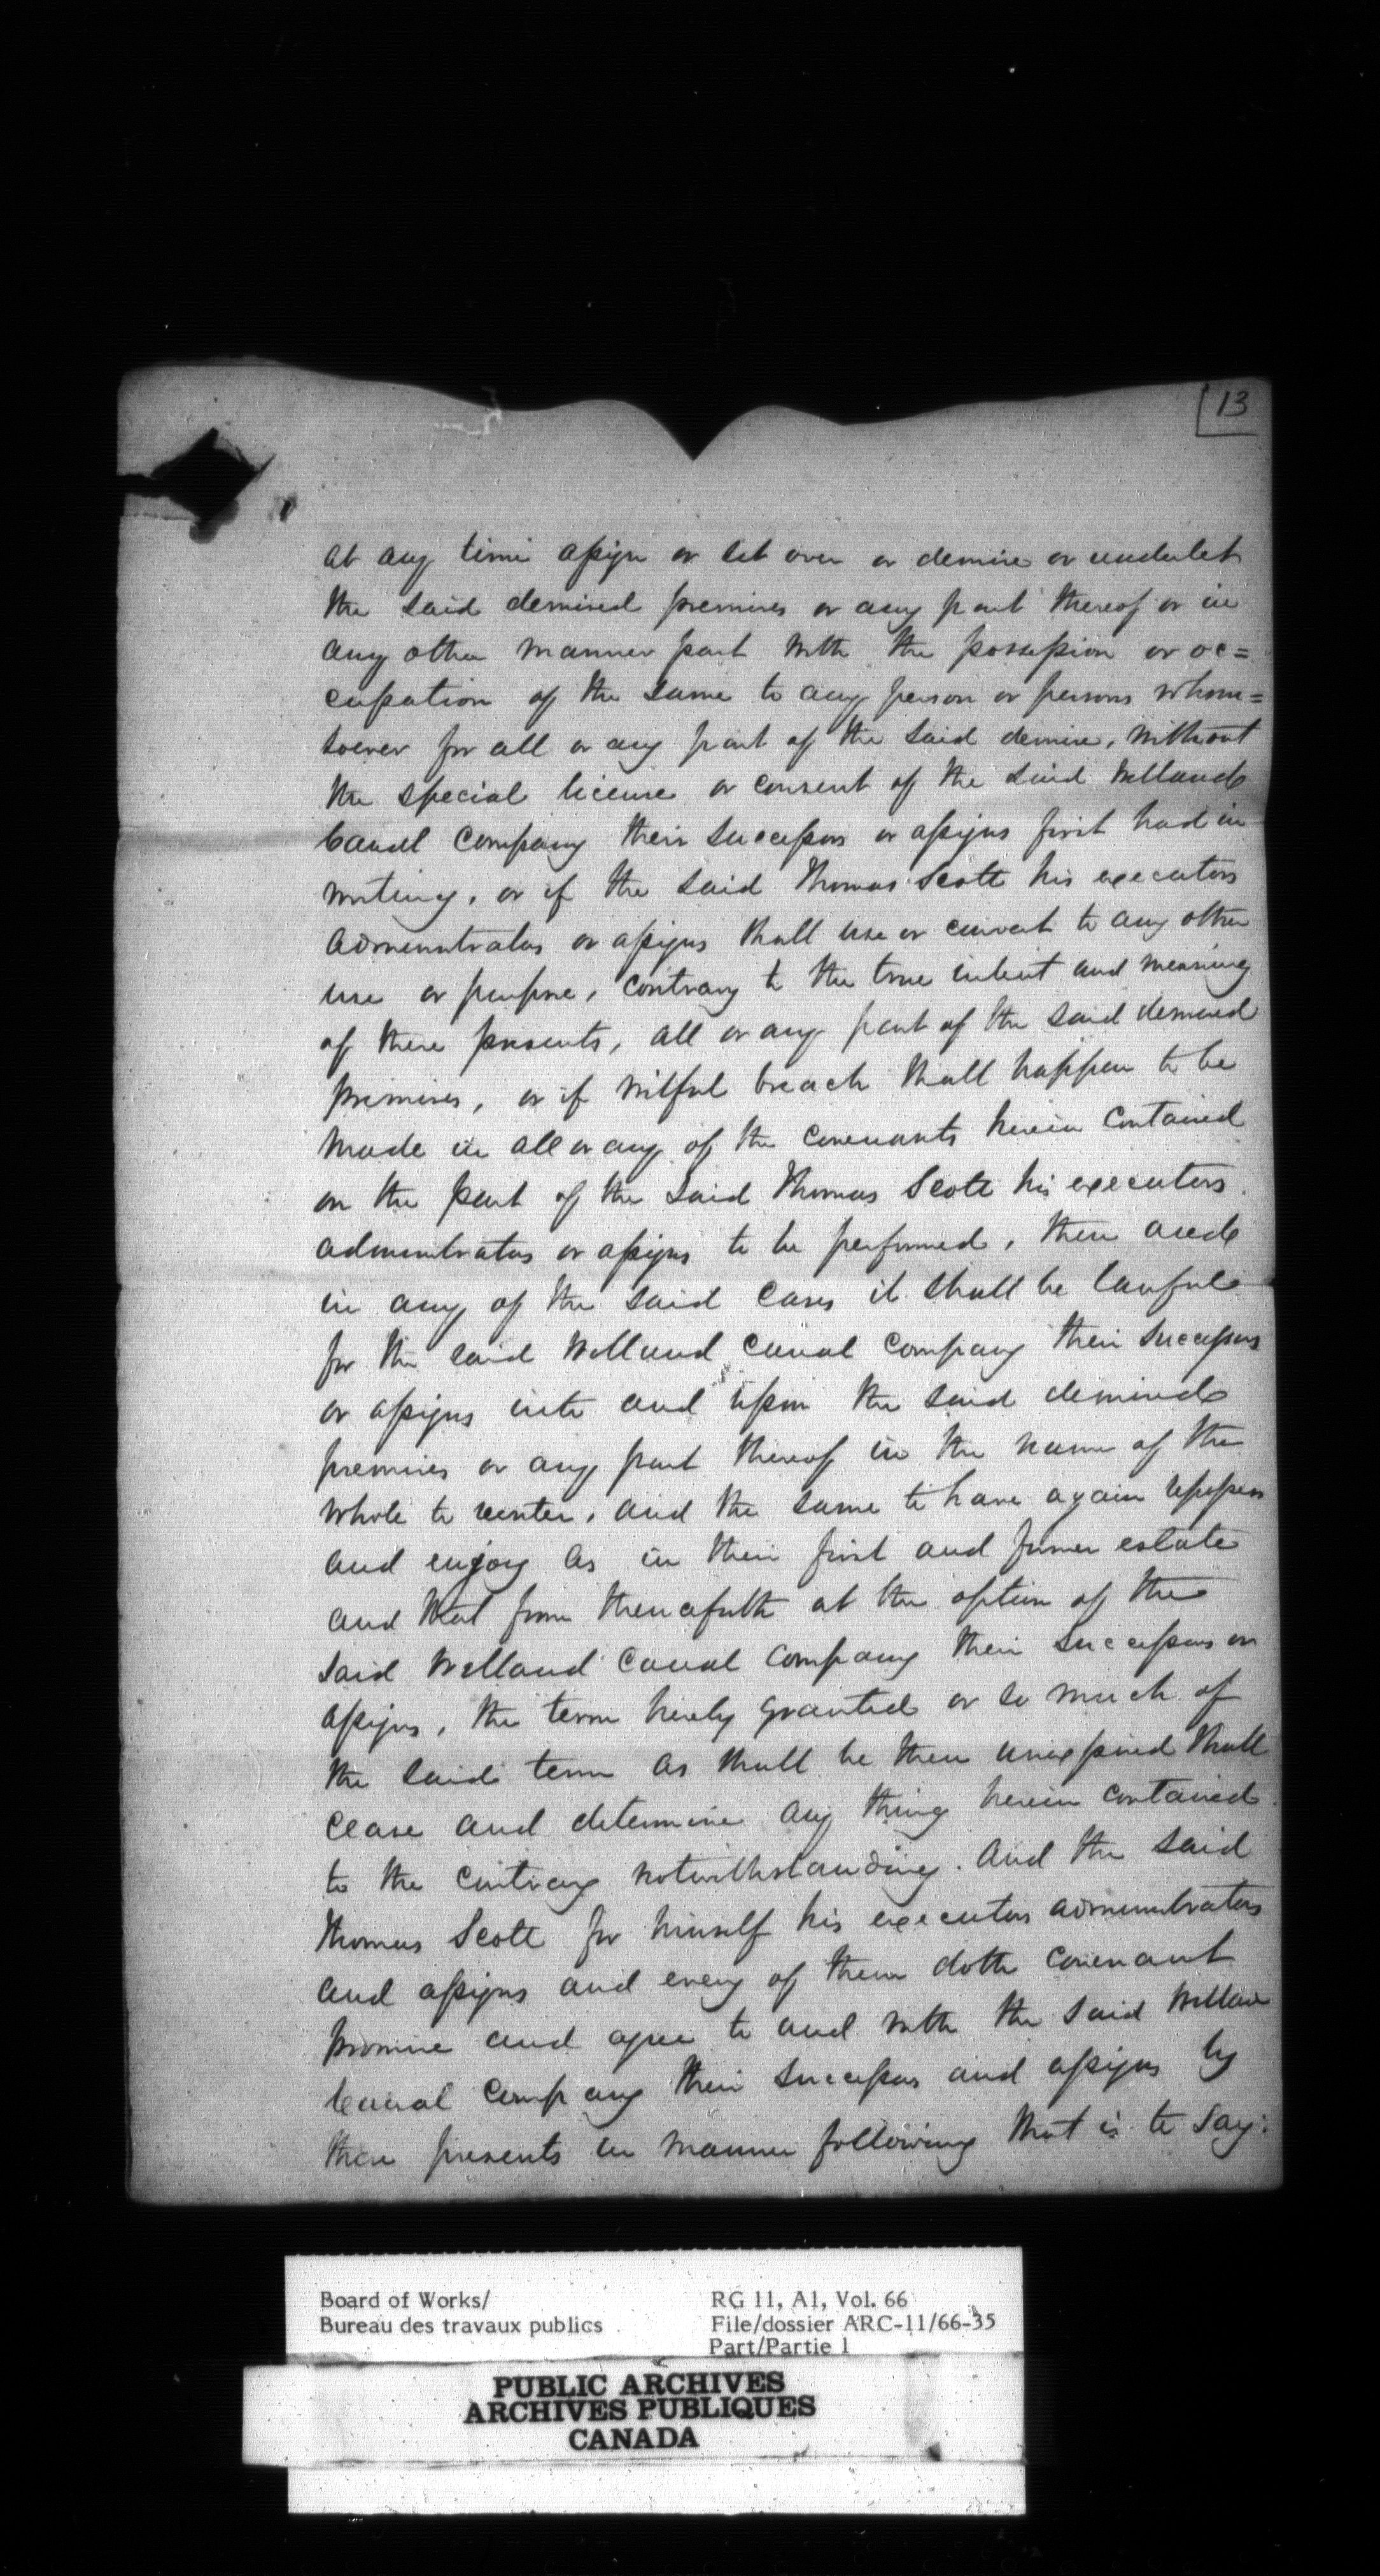 13
at any time assign or set over or demise or underlet
the said demised premises or any part thereof or in
any other manner part with the possession or oc=
cupation of the same to any person or persons whom=
soever for all or any part of the said demise, without
the special license or consent of the said Welland
Canal Company their successors or assigns first had in
writing, or if the said Thomas Scott his executors
administrators or assigns shall use or convert to any other
use or purpose, contrary to the true intent and meaning
of these presents, all or any part of the said demised
premises, or if wilful breach shall happen to be
made in all or any of the covenants herein contained
on the part of the said Thomas Scott his executors
administrators or assigns to be performed, then and
in any of the said cases it shall be lawful
for the said Welland Canal Company their successors
or assigns into and upon the said demised
premises or any part thereof in the name of the
whole to reenter, and the same to have again repossess
and enjoy as in their first and former estate
and that from thenceforth at the option of the
said Welland Canal Company their successors or
assigns, the term hereby granted or so much of
the said term as shall be then unexpired shall
cease and determine any thing herein contained
to the contrary notwithstanding. And the said
Thomas Scott for himself his executors administrators
and assigns and every of them doth covenant
promise and agree to and with the said Welland
Canal Company their successors and assigns by
these presents in manner following that is to say:
Board of Works/ RG 11, A1, Vol. 66
Bureau des travaux publics File/dossier ARC-11/66-35
Part/Partie 1
PUBLIC ARCHIVES
ARCHIVES PUBLIQUES
CANADA